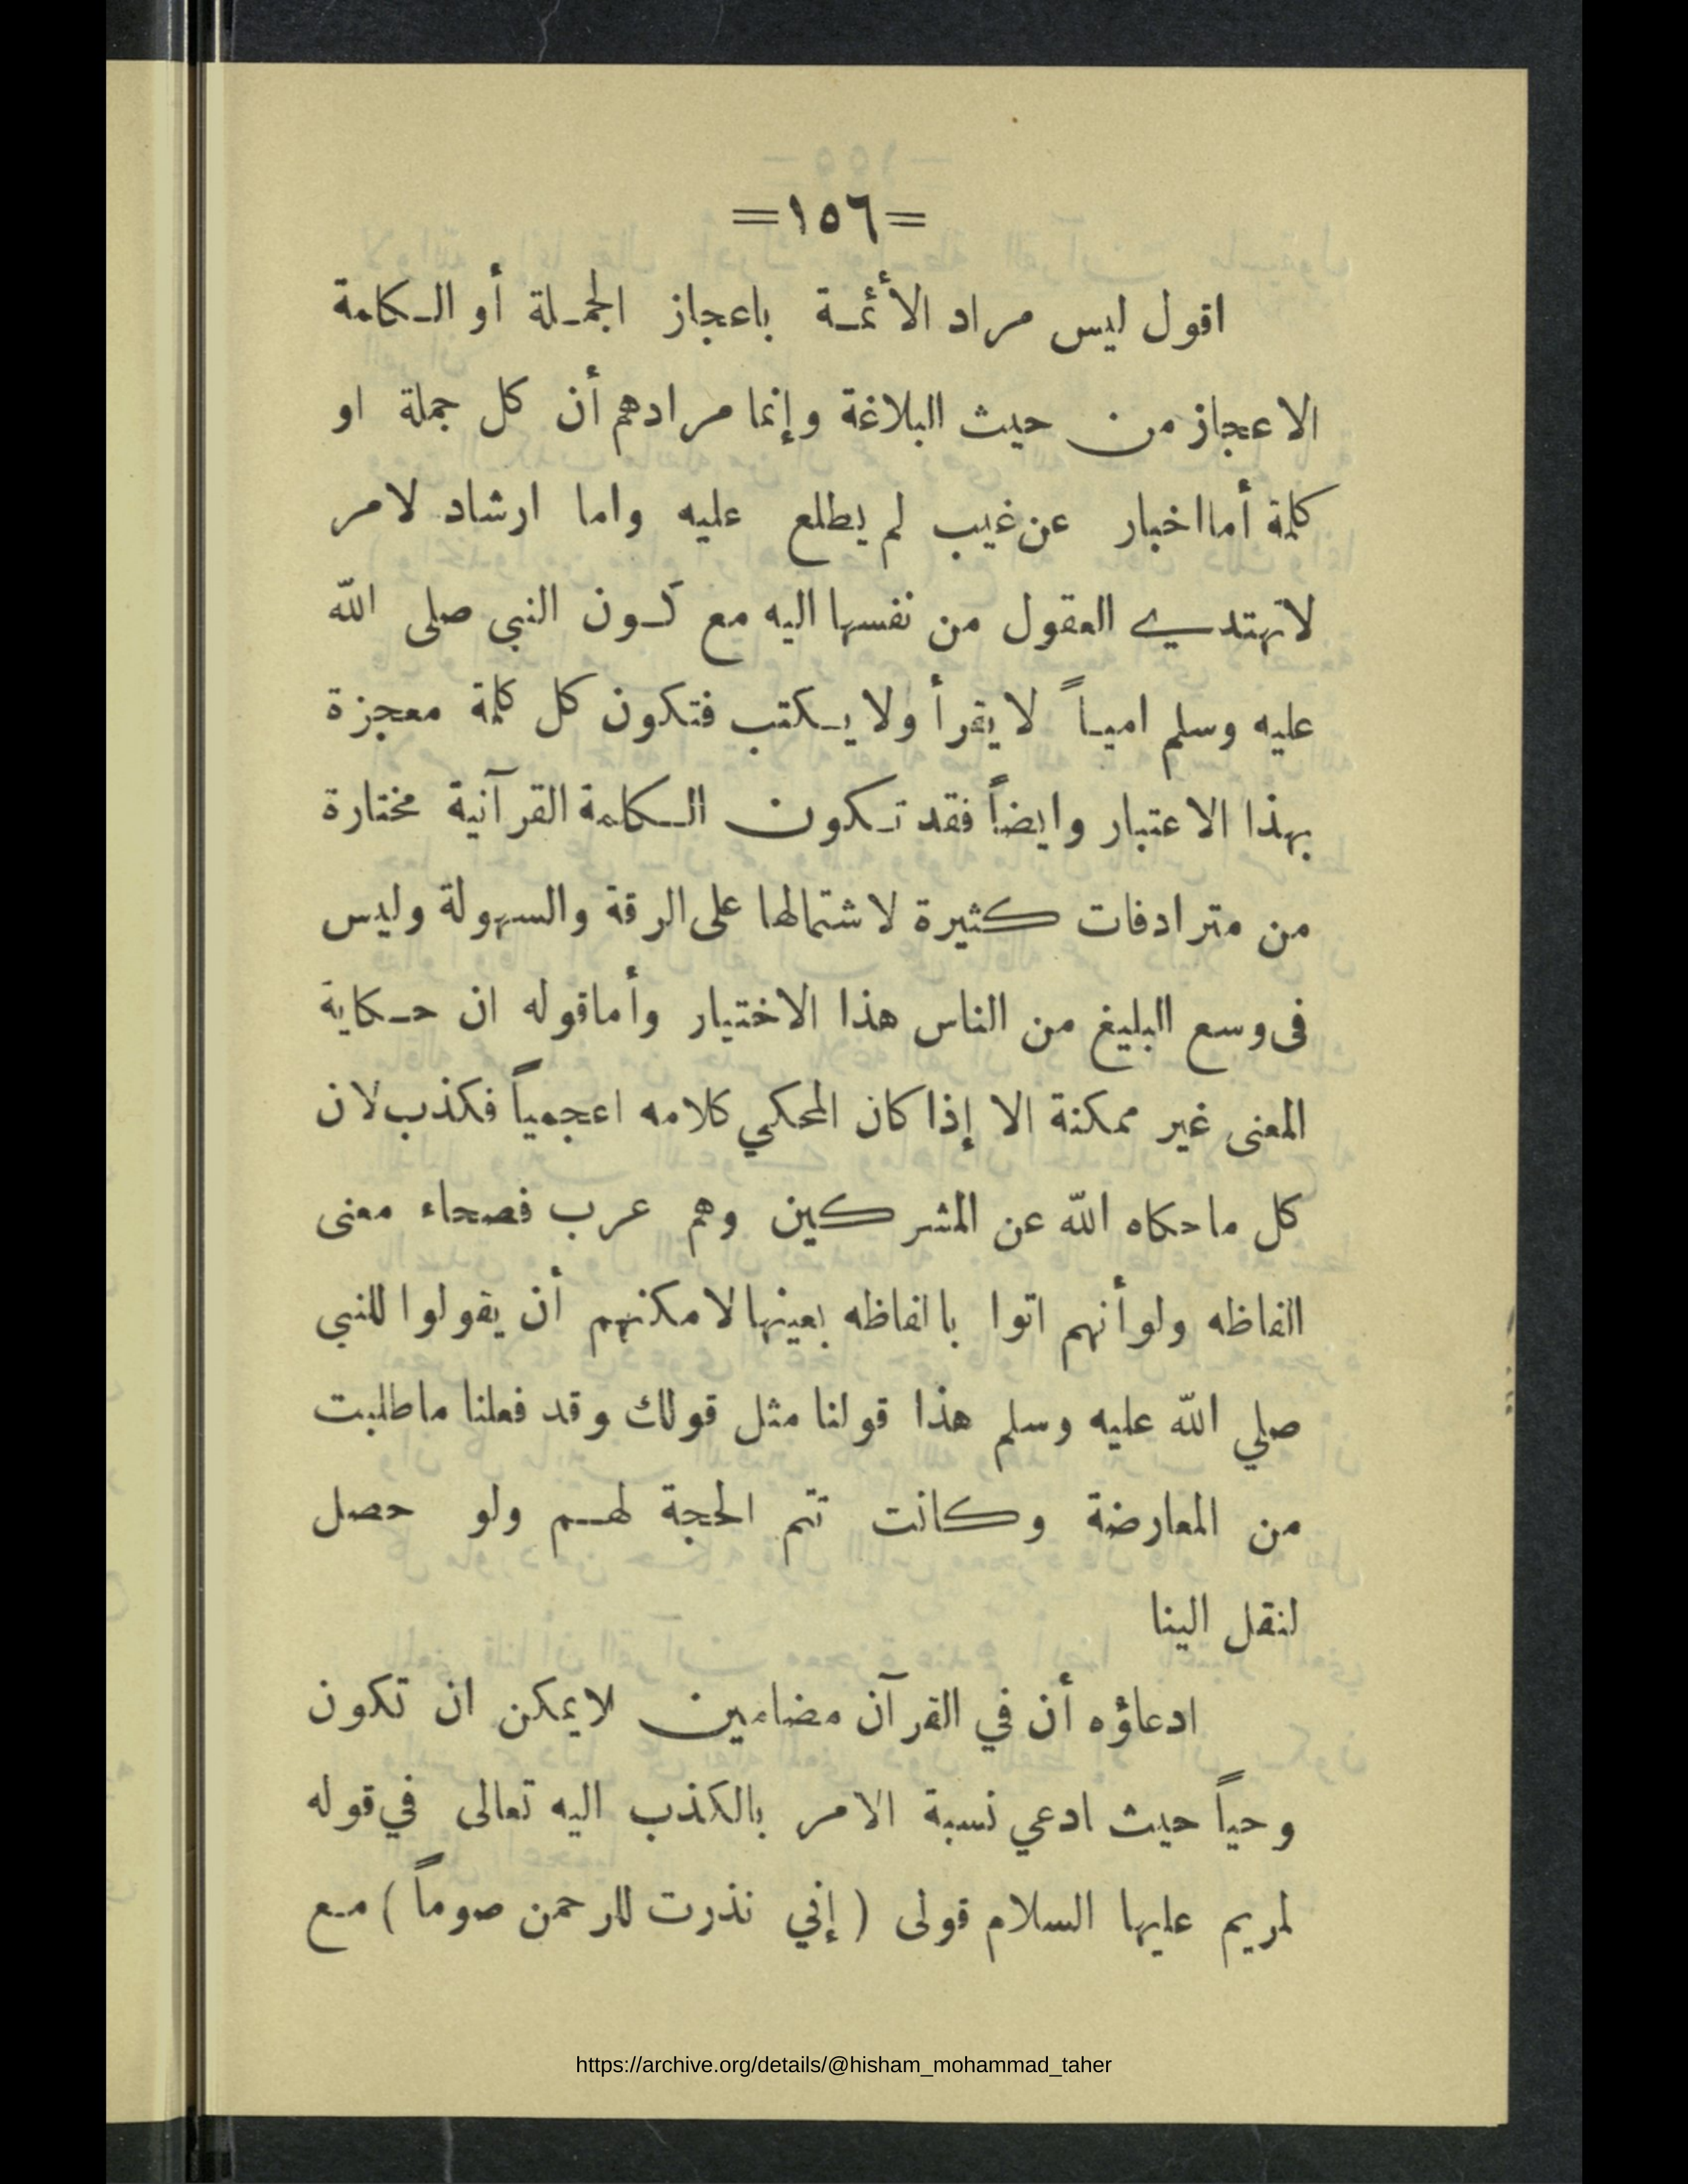 =١٥٦=
اقول ليس مراد الأئمة باعجاز الجملة أو الكلمة
الاعجاز من حيث البلاغة وإنما مرادهم أن كل جملة او
كلمة أما اخبار عن غيب لم يطلع عليه واما ارشاد لامر
لاتهتدي العقول من نفسها اليه مع كون النبي صلى الله
عليه وسلم امياً لا يقرأ ولا يكتب فتكون كل كلمة معجزة
بهذا الاعتبار وايضاً فقد تكون الكلمة القرآنية مختارة
من مترادفات كثيرة لاشتمالها على الرقة والسهولة وليس
فى وسع البليغ من الناس هذا الاختيار وأما قوله ان حكاية
المعنى غير ممكنة الا إذا كان المحكي كلامه اعجمياً فكذب لان
كل ماحكاه الله عن المشركين وهم عرب فصحاء معنى
الفاظه ولو أنهم اتوا بالفاظه بعينها لامكنهم أن يقولوا للنبي
صلي الله عليه وسلم هذا قولنا مثل قولك وقد فعلنا ماطلبت
من المعارضة وكانت تتم الحجة لهم ولو حصل
لنقل الينا
ادعاؤه أن في القرآن مضامين لايمكن ان تكون
وحياً حيث ادعي نسبة الامر بالكذب اليه تعالى في قوله
لمريم عليها السلام قولى ( إني نذرت للرحمن صوماً ) مع
https://archive.org/details/@hisham_mohammad_taher